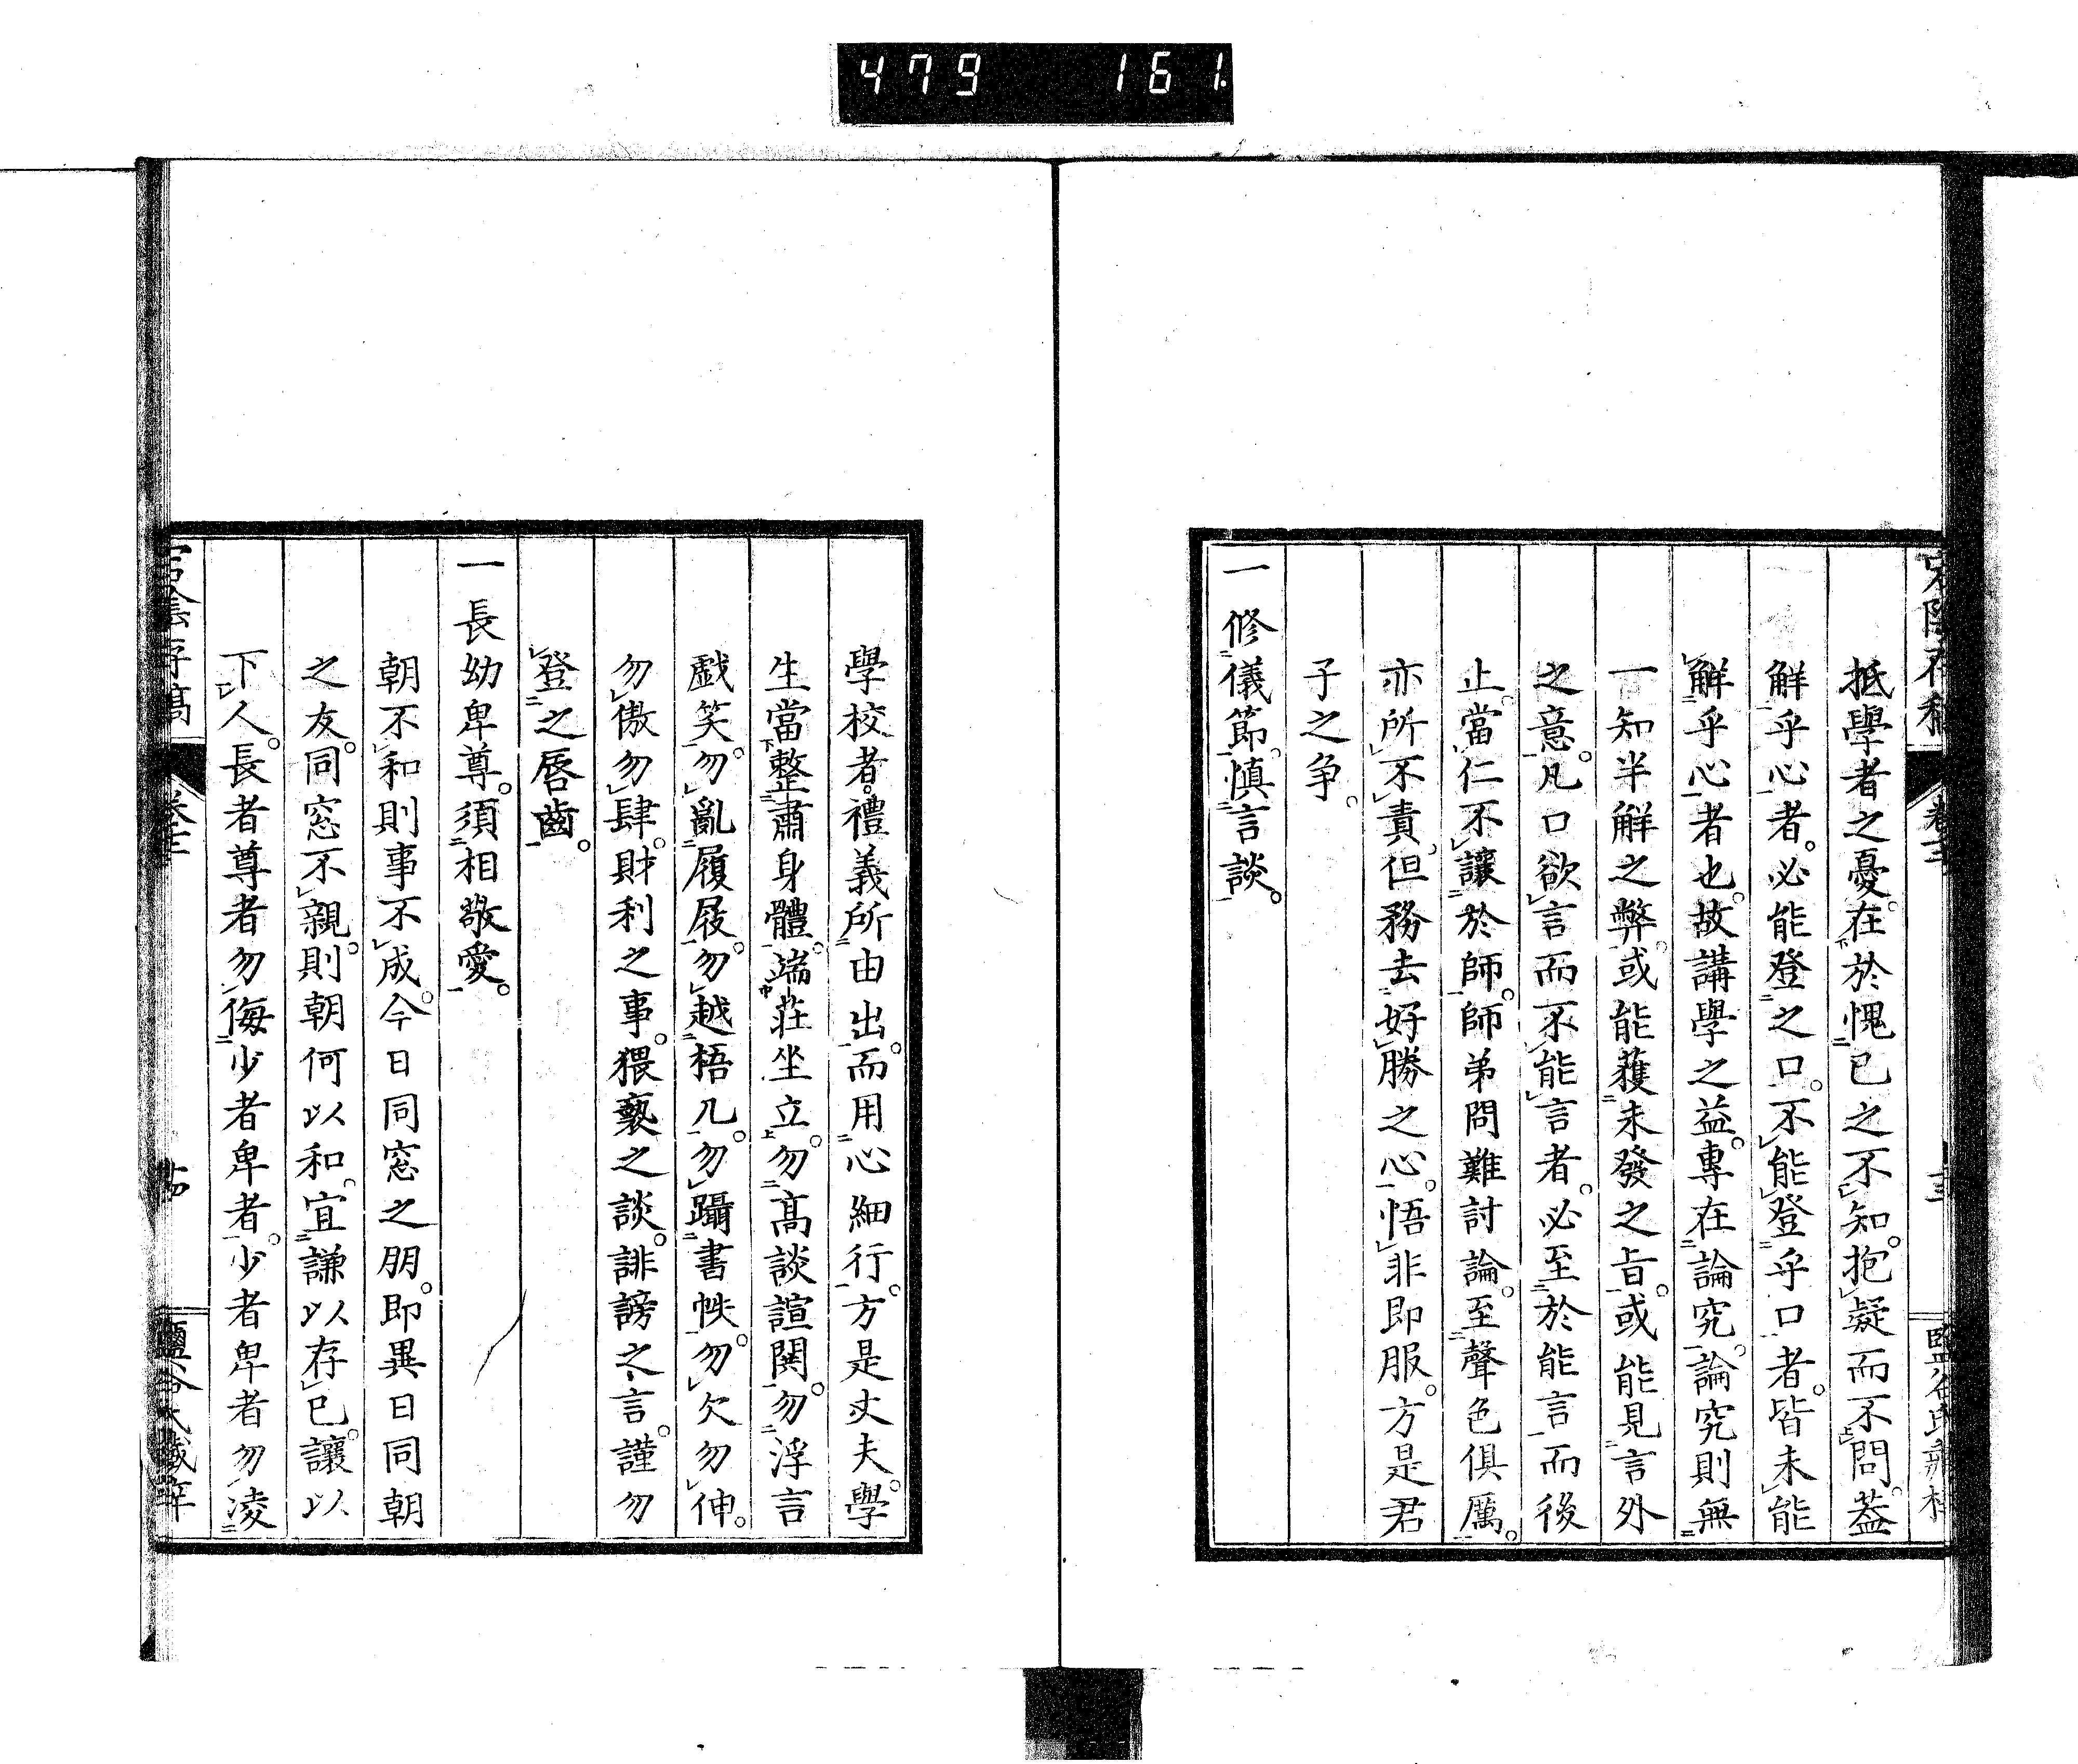 479 161.
抵學者之憂。在於愧已之不知。抱疑而不問。葢
解乎心者。必能登之口。不能登乎口者。皆未能
解乎心者也。故講學之益。專在論究。論究則無
一知半解之弊。或能蓶未發之旨。或能見言外
之意。凡口欲言而不能言者。必至於能言而後
止。當仁不讓於師。師弟問難討論。至聲色俱厲。
亦所不責。但務去好勝之心。悟非即服。方是君
子之争。
一修儀節。慎言談。
學校者。禮義所由出。而用心細行。方是丈夫。學
生當整肅身體。端莊坐立。勿高談諠鬨。勿浮言
戯笑。勿亂履屐。勿越梧几。勿躡書帙。勿欠勿伸。
勿傲勿肆。財利之事。猥褻之談。誹謗之言。謹勿
登之唇齒。
一長幼卑尊。須相敬愛。
朝不和則事不成。今日同窓之朋。即異日同朝
之友。同窓不親。則朝何以和。宜謙以存已。讓以
下人。長者尊者勿侮少者卑者。少者卑者勿凌